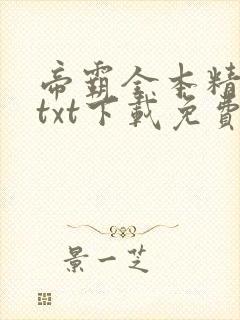 帝霸全本精
txt下载免費
景一芝